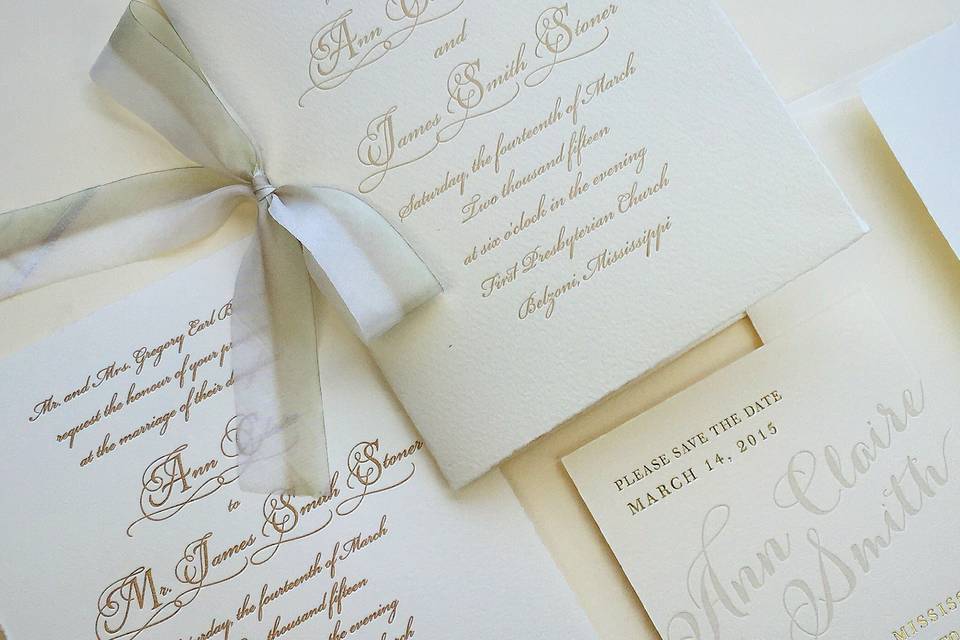 Ann
and
James Smith Stoner
Saturday, the fourteenth of March
Two thousand fifteen
at six o'clock in the evening
First Presbyterian Church
Belzoni, Mississippi
Mr. and Mrs. Gregory Earl
request the honour of your
at the marriage of their
Ann
to
Mr. James Smith Stoner
Saturday, the fourteenth of March
thousand fifteen
the evening
PLEASE SAVE THE DATE
MARCH 14, 2015
Ann Claire
Smith